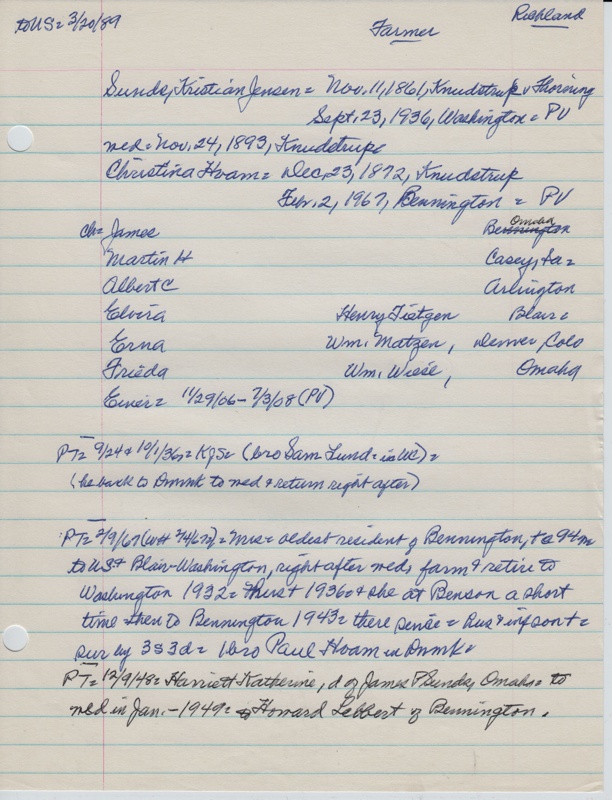 to US = 3/20/89
Farmer
Richland
Sunds, Kristian Jensen = Nov. 11, 1861, Knudstrup v Thorning
Sept. 23, 1936, Washington = PV
wed = Nov. 24, 1893, Knudstrup
Christina Hvam = Dec. 23, 1872, Knudstrup
Feb. 2, 1967, Bennington = PV
Ch = James Bennington Omaha
Martin H Casey, Ia =
Albert C Arlington
Elvira Henry Tietgen Blair =
Erna Wm. Matzen, Denver, Colo
Frieda Wm. Wiese, Omaha
Einer = 11/29/06 - 7/3/08 (PV)
PT = 9/24 & 10/1/36 = KJS = (bro Sam Lund = in WC) =
(he back to Dnmk to wed & return right after)
PT = 2/9/67 = Mrs = oldest resident of Bennington, + a 94 =
to US & Blair-Washington, right after wed, farm & retire to
Washington 1932 = Hus + 1936 = & she at Benson a short
time then to Bennington 1943 = there sense = Hus & inf son + =
sur by 3s 3d = 1 bro Paul Hvam in Dnmk =
PT = 12/9/48 = Harriett Katherine, d of James P Sunds, Omaha = to
wed in Jan. - 1949 = Howard Lebbert of Bennington.